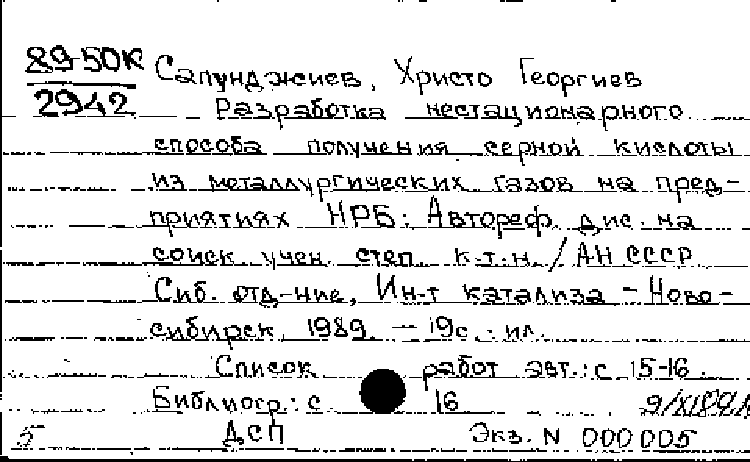 89-50К
2942
Сапунджиев, Христо Георгиев
Разработка нестационарного
способа получения серной кислоты
из металлургических газов на пред-
приятиях НРБ: Автореф. дис. на
соиск. учен. степ. к.т.н. / АН СССР
Сиб. отд-ние, Ин-т катализа - Ново-
сибирск, 1989. - 19с. : ил.
Список работ авт.: с 15-16.
Библиогр.: с. 16
5 ДСП Экз. N 000005